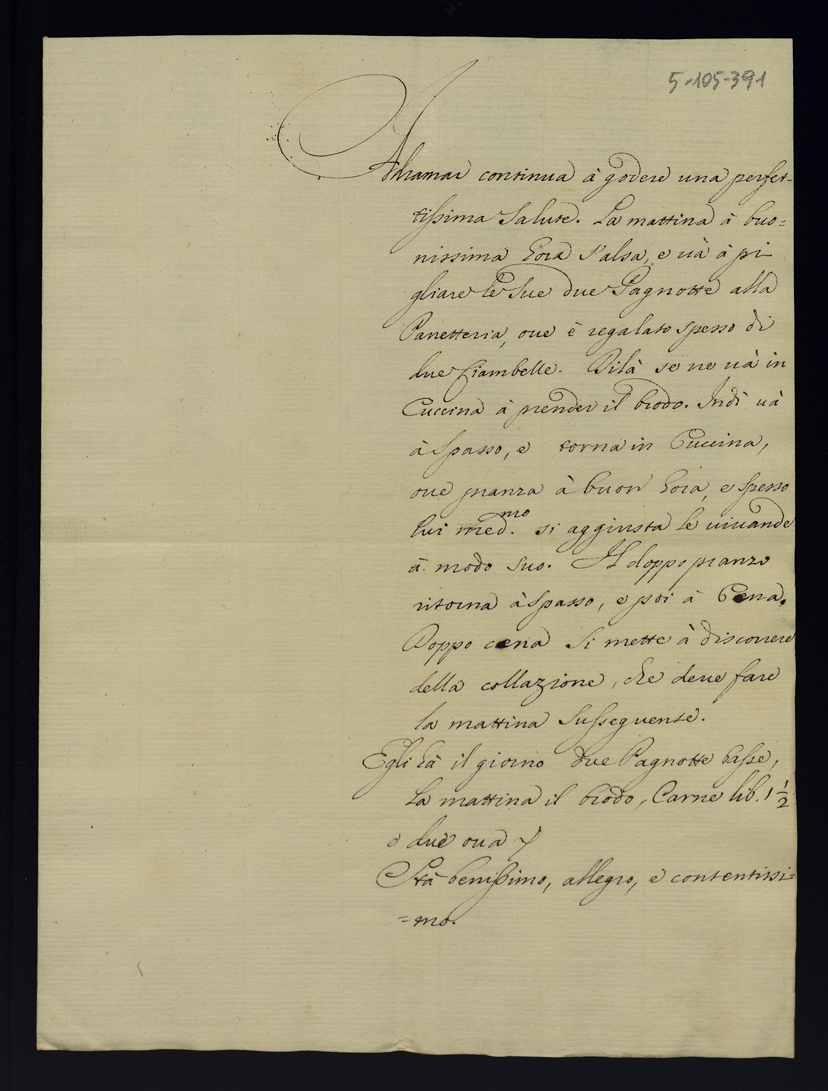 5-105-391
Adramar continua à godere una perfet-
tissima Salute. La mattina à buo=
nissima hora s'alza, e và à pi
gliare le Sue due Pagnotte alla
Panetteria, oue è regalato spesso di
due Ciambelle. Di là se ne và in
Cuccina à prender il brodo. Indi và
à Spasso, e torna in Cuccina,
oue pranza à buon' hora, e spesso
lui med.mo si aggiusta le viuande
à modo suo. Il doppo pranzo
ritorna à Spasso, e poi à Cena.
Doppo cena si mette à discorrere
della collazione, che deue fare
la mattina Susseguente.
Egli hà il giorno due Pagnotte basse,
La mattina il brodo, Carne lib. 1 1/2
e due oua
Stà benissimo, allegro, e contentissi=
=mo.